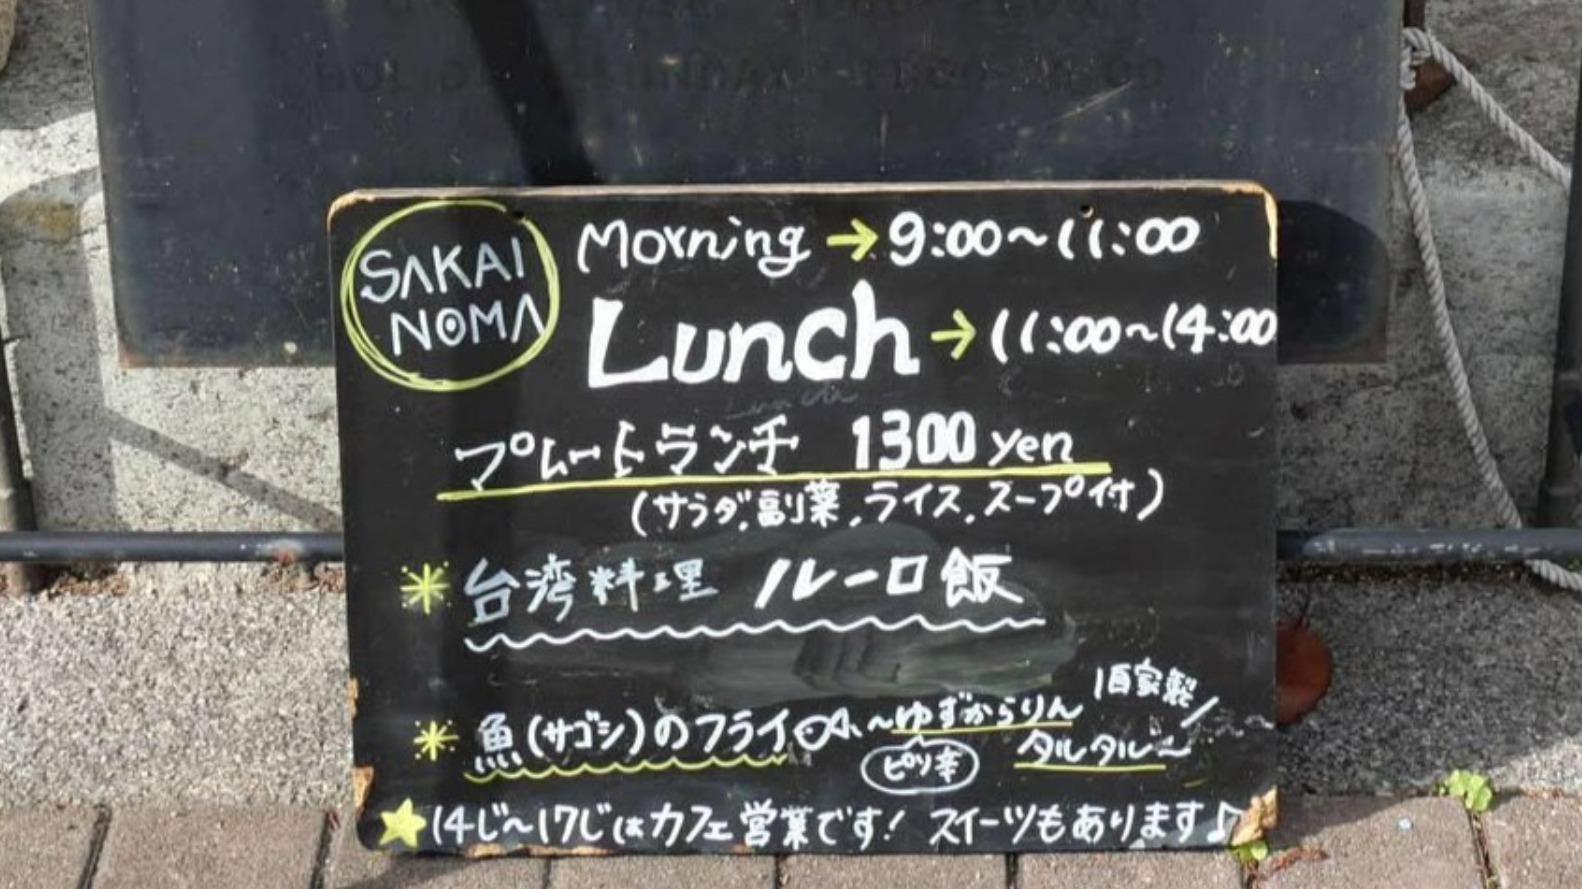 SAKAI
NOMA
Morning → 9:00~11:00
Lunch → 11:00~14:00
プレートランチ 1300 yen
(サラダ、副菜、ライス、スープ付)
台湾料理 ルーロ飯
魚(サゴシ)のフライ ~ゆずからりん
ピリ辛
自家製
タルタル~
14じ~17じはカフェ営業です! スイーツもあります♪